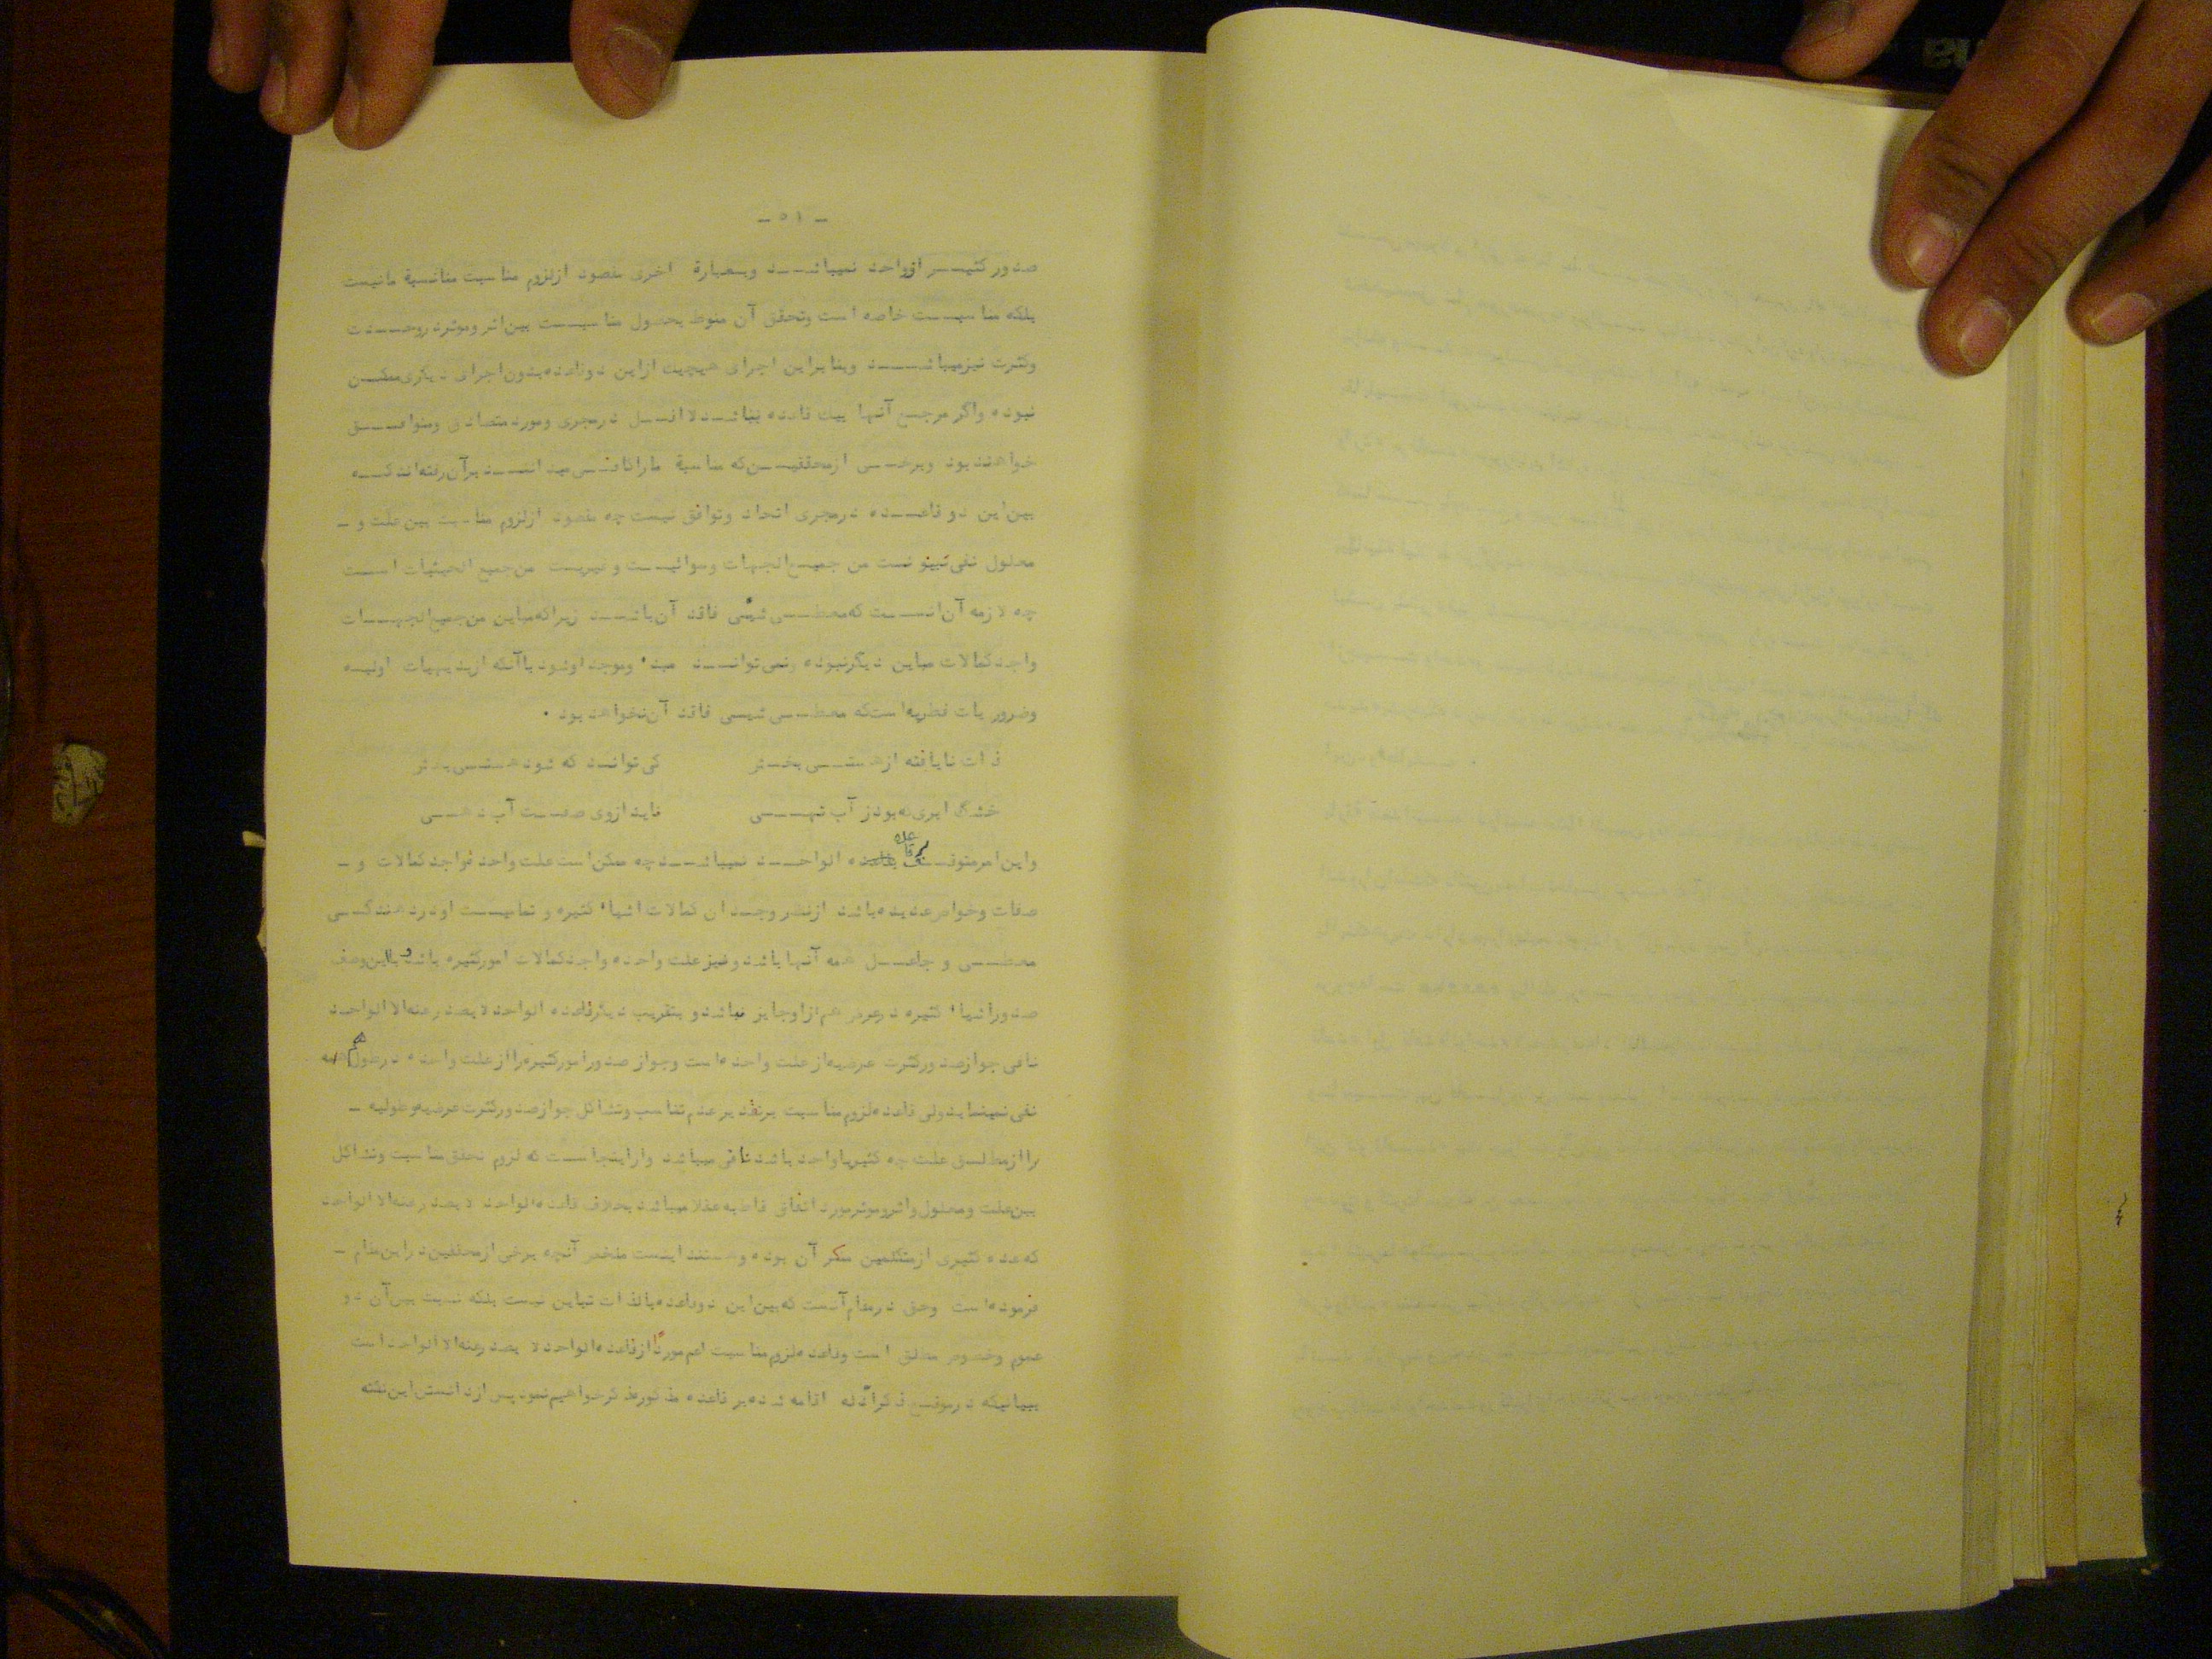 - ۵۱ -
صدور کثیر از واحد نمیباشد وبعبارة اخری مقصود ازلزوم مناسبت مناسبة مانیست
بلکه مناسبت خاصه است وتحقق آن منوط بحصول مناسبت بین اثر وموثر در وحدت
وکثرت نیزمیباشد وبنابراین اجرای هیچیک ازاین دوقاعده بدون اجرای دیگری ممکن
نبوده واگر مرجع آنها بیک قاعده نباشد لااقل درمجری ومورد متصادق ومتوافق
خواهند بود وبرخی ازمحققین که مناسبة ما راکافی میدانند برآن رفته اند که
بین این دو قاعده درمجری اتحاد وتوافق نیست چه مقصود ازلزوم مناسبت بین علت و -
معلول نفی بینونت من جمیع الجهات وسوائیت وغیریت من جمیع الحیثیات است
چه لازمه آن است که معطی شیئی فاقد آن باشد زیراکه مباین من جمیع الجهات
واجد کمالات مباین دیگر نبوده ونمی توانند مبدء وموجد اوشود باآنکه ازبدیهیات اولیه
وضرور یات فطریه است که معطی شیئی فاقد آن نخواهد بود .
ذات نایافته از هستی بخش کی تواند که شود هستی بخش
خشک ابری که بود ز آب تهی ناید از وی صفت آب دهی
واین امر متوقف بر قاعده الواحد نمیباشد چه ممکن است علت واحد فواجد کمالات و -
صفات وخواص عدیده باشد ازنظر وجدان کمالات اشیاء کثیره و تمامیت او در دهندگی
معطی و جاعل همه آنها باشد ونیز علت واحده واجد کمالات امور کثیره باشد وبااین وصف
صدور اشیاء کثیره درعرض هم از او جایز نباشد و بتقریب دیگر قاعده الواحد لایصدر عنه الا الواحد
نافی جواز صدور کثرت عرضیه از علت واحده است وجواز صدور امور کثیره را از علت واحده درطول هم
نفی نمینماید ولی قاعده لزوم مناسبت برتقدیر عدم تناسب وتشاکل جواز صدور کثرت عرضیه وطولیه -
را ازمطلق علت چه کثیر یا واحد باشد نافی میباشد وازاینجا است که لزوم تحقق مناسبت وتشاکل
بین علت ومعلول واثر وموثر مورد اتفاق قاطبه عقلا میباشد بخلاف قاعده الواحد لا یصدر عنه الا الواحد
که عده کثیری ازمتکلمین منکر آن بوده وهستند اینست ملخص آنچه برخی ازمحققین دراین مقام -
فرموده است وحق درمقام آنست که بین این دوقاعده بالذات تباین نیست بلکه نسبت بین آن دو
عموم وخصوص مطلق است وقاعده لزوم مناسبت اعم مورداً ازقاعده الواحد لا یصدر عنه الا الواحد است
ببیانیکه درموقع ذکر ادله اقامه شده بر قاعده مذکوره ذکر خواهیم نمود پس ازدانستن این نکته